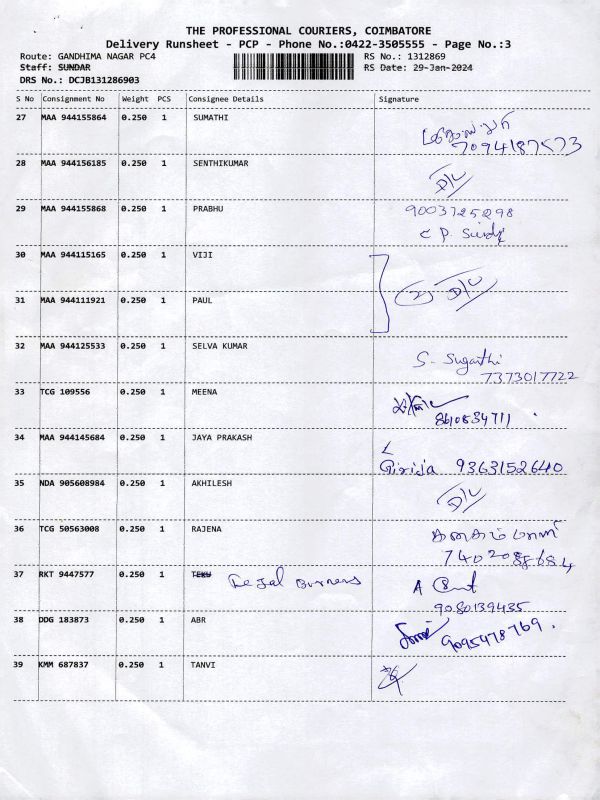 THE PROFESSIONAL COURIERS, COIMBATORE
Delivery Runsheet - PCP - Phone No.:0422-3505555 - Page No.:3
Route: GANDHIMA NAGAR PC4 RS No.: 1312869
Staff: SUNDAR RS Date: 29-Jan-2024
DRS No.: DCJB131286903
S No Consignment No Weight PCS Consignee Details Signature
27 MAA 944155864 0.250 1 SUMATHI
7094187573
28 MAA 944156185 0.250 1 SENTHIKUMAR
D/L
29 MAA 944155868 0.250 1 PRABHU 9003725298
30 MAA 944115165 0.250 1 VIJI
(2) D/L
31 MAA 944111921 0.250 1 PAUL
32 MAA 944125533 0.250 1 SELVA KUMAR
S. Suganthi
7373017722
33 TCG 109556 0.250 1 MEENA
8610834711
34 MAA 944145684 0.250 1 JAYA PRAKASH
Girija 9363152640
35 NDA 905608984 0.250 1 AKHILESH
D/L
36 TCG 50563008 0.250 1 RAJENA
37 RKT 9447577 0.250 1 TEKU Burners
9080139435
38 DDG 183873 0.250 1 ABR
9095478769.
39 KMM 687837 0.250 1 TANVI